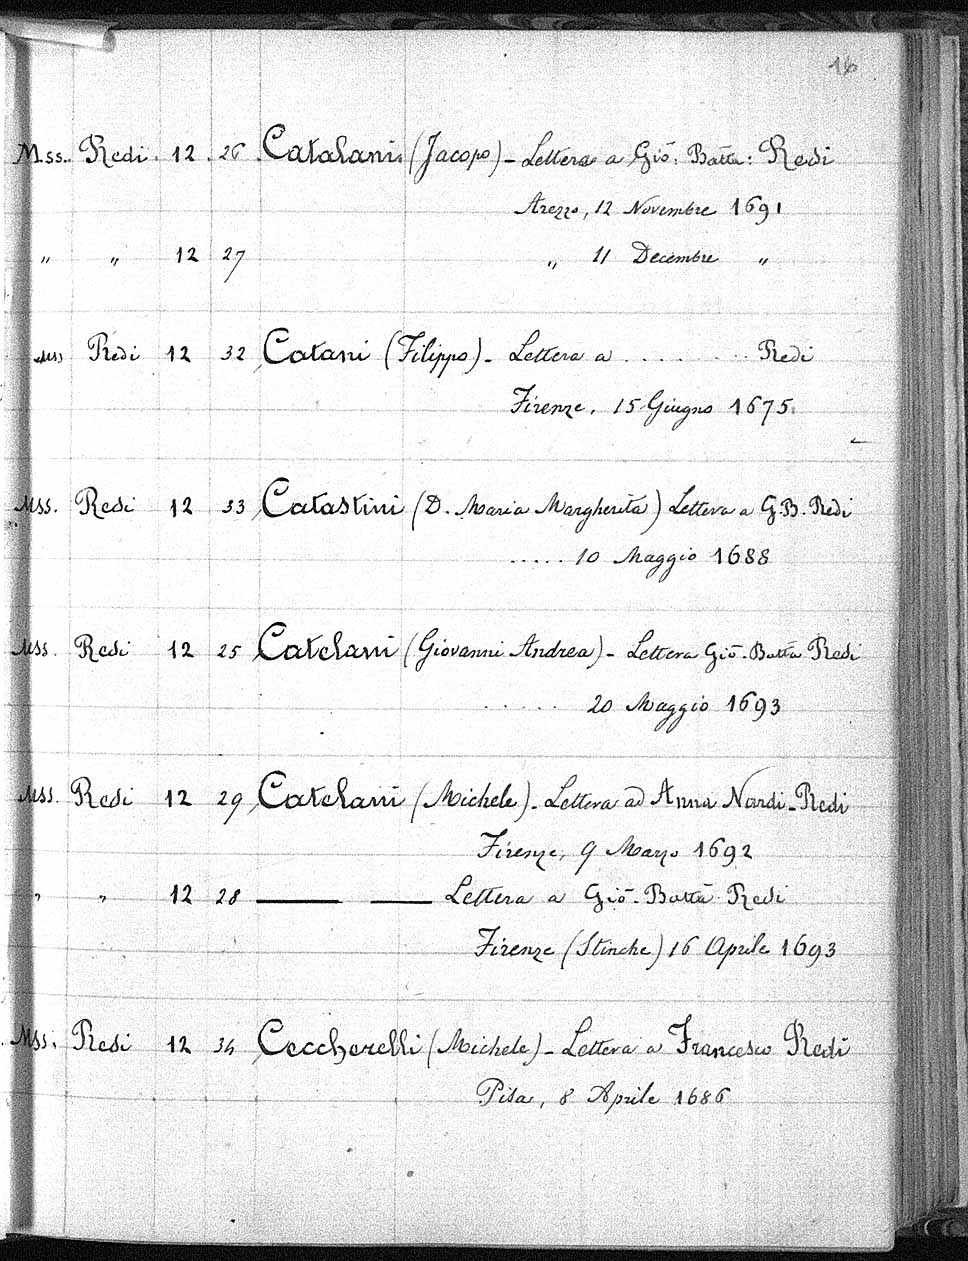 16
Mss. Redi. 12. 26 Catalani (Jacopo) - Lettera a Giō: Batta: Redi
Arezzo, 12 Novembre 1691
" " 12 27 " 11 Decembre "
Mss Redi 12 32 Catani (Filippo) - Lettera a . . . . . . . . Redi
Firenze, 15 Giugno 1675
Mss. Redi 12 33 Catastini (D. Maria Margherita) Lettera a G.B. Redi
. . . . . 10 Maggio 1688
Mss. Redi 12 25 Catelani (Giovanni Andrea) - Lettera Giō-Batta Redi
. . . . . . 20 Maggio 1693
Mss. Redi 12 29 Catelani (Michele) - Lettera ad Anna Nardi-Redi
Firenze, 9 Marzo 1692
" " 12 28 —— —— Lettera a Giō-Batta Redi
Firenze (Stinche) 16 Aprile 1693
Mss. Redi 12 34 Ceccherelli (Michele) - Lettera a Francesco Redi
Pisa, 8 Aprile 1686